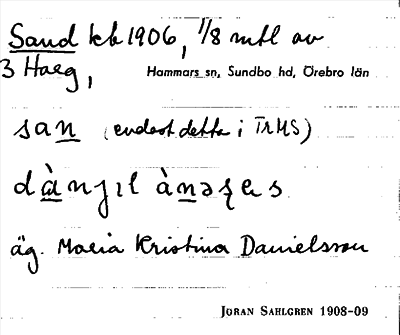 Sand kb 1906, 1/8 mtl av
3 Haeg,
Hammars sn, Sundbo hd, Örebro län
san (endast detta i TrMS)
äg. Maria Kristina Danielsson
JÖRAN SAHLGREN 1908-09